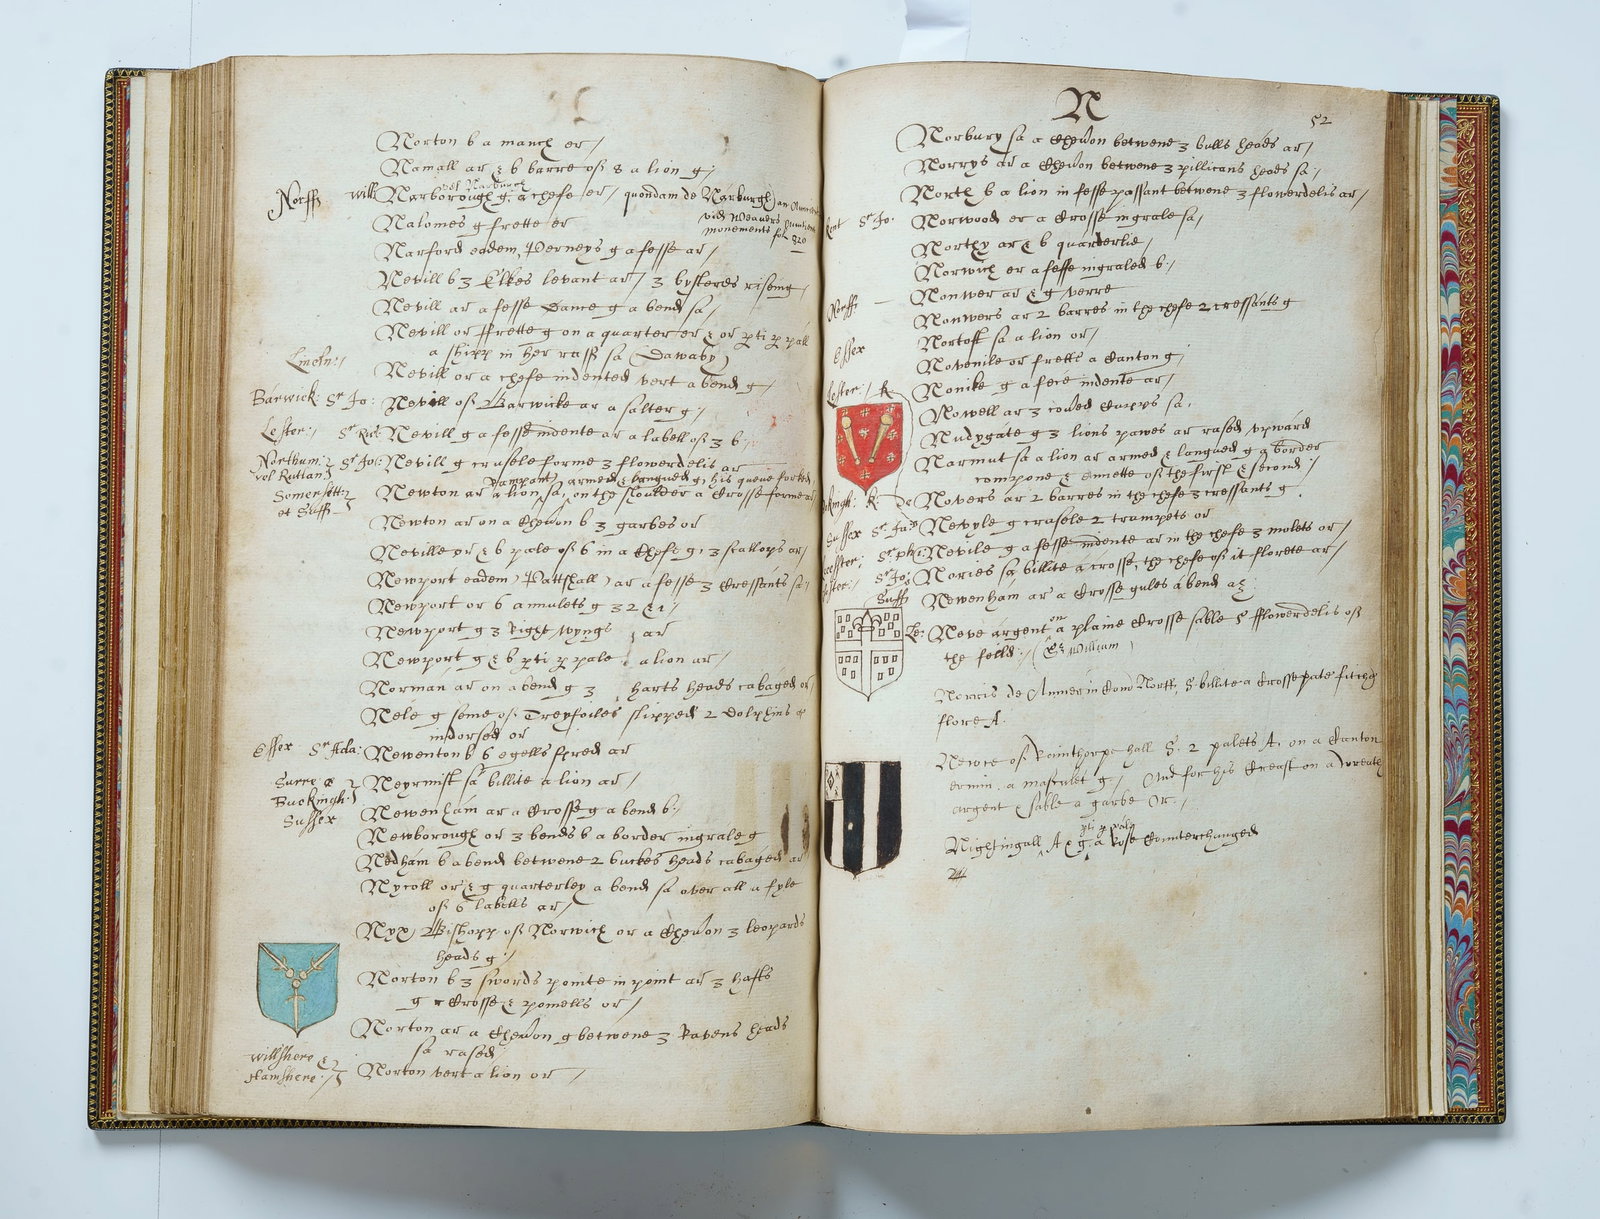 Norton b a manch er /
Namall ar & b barre of 8 a lion g /
Norff: will: Narborough g. a chefe er / quondam de Narburgh
vide Weavers
monements fol 820
Nalomes g frette er
Narford eadem, Perneys g a fesse ar /
Nevill b 3 Elkes levant ar / 3 bysterds rising
Nevill ar a fesse Dance g a bend sa /
Nevill or ffrette g on a quarter er & or pti p pall
a shipp in her raff sa (Dawaby)
Lincoln: / Nevill or a chefe indented vert a bend g /
Barwick: Sr Jo: Nevill of Barwicke ar a salter g /
Lester: / Sr Ric: Nevill g a fesse indente ar a labell of 3 b
Northum: vel Rutlan Sr Jo: Nevill g crusele forme 3 flowerdelis ar
Rampant, armed & langued g, his queue forked,
Somersett et Suff: Newton ar a lion sa, on the shoulder a Crosse forme ar
Newton ar on a Chevon b 3 garbes or
Neville er & b pale of 6 in a Chefe g, 3 scallops ar /
Newport eadem) Pattshall) ar a fesse 3 Cressants sa /
Newport or 6 annulets g 3 2 & 1 /
Newport g 3 Right wyngs ar
Newport g & b pti p pale a lion ar /
Norman ar on a bend g 3 harts heads cabaged or /
Nele g seme of Treyfoiles slipped 2 dolphins
indorsed or
Essex Sr Ada: Newenton b 6 egells spred ar
Surre & Buckingh: Neyrnist sa billite a lion ar /
Sussex Newenham ar a Crosse g a bend b /
Newborough or 3 bends b a border ingrale g
Nedham b a bend betwene 2 buckes heads cabaged ar
Nycoll or & g quarterley a bend sa over all a fyle
of 6 labells ar /
Nyx) Bishopp of Norwich or a Chevon 3 leopards
heads g /
Norton b 3 swords pointe in point ar 3 hafts
g Crosse & pomells or /
Norton ar a Chevon g betwene 3 Ravens heads
sa rased
Willshere & Hamshere: / Norton vert a lion or /
N
52
Norbury sa a Chevon betwene 3 bulls heads ar /
Norrys ar a Chevon betwene 3 pillicans heads sa /
North b a lion in fesse passant betwene 3 flowerdelis ar /
Kent Sr Jo: Norwood er a Crosse ingrale sa /
Northy ar & b quarterlie /
Norwich er a fesse ingraled b: /
Norff: Nonwer ar & g verre
Nonwers ar 2 barres in the chefe 2 cressants g
Essex Nortoff sa a lion or /
Novenile or frette a Canton g /
Lester: / K Nonike g a fece indente ar /
Nowell ar 3 coved Cupps sa.
Nudygate g 3 lions pawes ar rased upward
Narmut sa a lion ar armed & langued g a border
compone & ermette of the first & second: /
Buckingh: K de Novers ar 2 barres in the chefe 3 cressants g.
Sussex Sr Ja: Nevyle g crusele 2 trumpets or
Leicester: Sr ph: Nevile g a fesse indente ar in the chefe 3 molets or /
Leister: / Sr Jo: Nories sa billite a crosse, the chefe of it florete ar /
Suff: Newenham ar a Crosse gules a bend az
Le: Neve argent on a plaine Crosse sable 5 fflowerdelis of
the feild: / (Sr William)
Norris de Anmer in Com Norff, S. billite a Crosse pate fiting
flore A.
Newce of Rainthorpe hall S. 2 palets A. on a Canton
ermin. a masculet g / And for his Creast on a wreath
argent & sable a garbe Or. /
Nightingall A & g. pti p pale a Rose Counterchanged